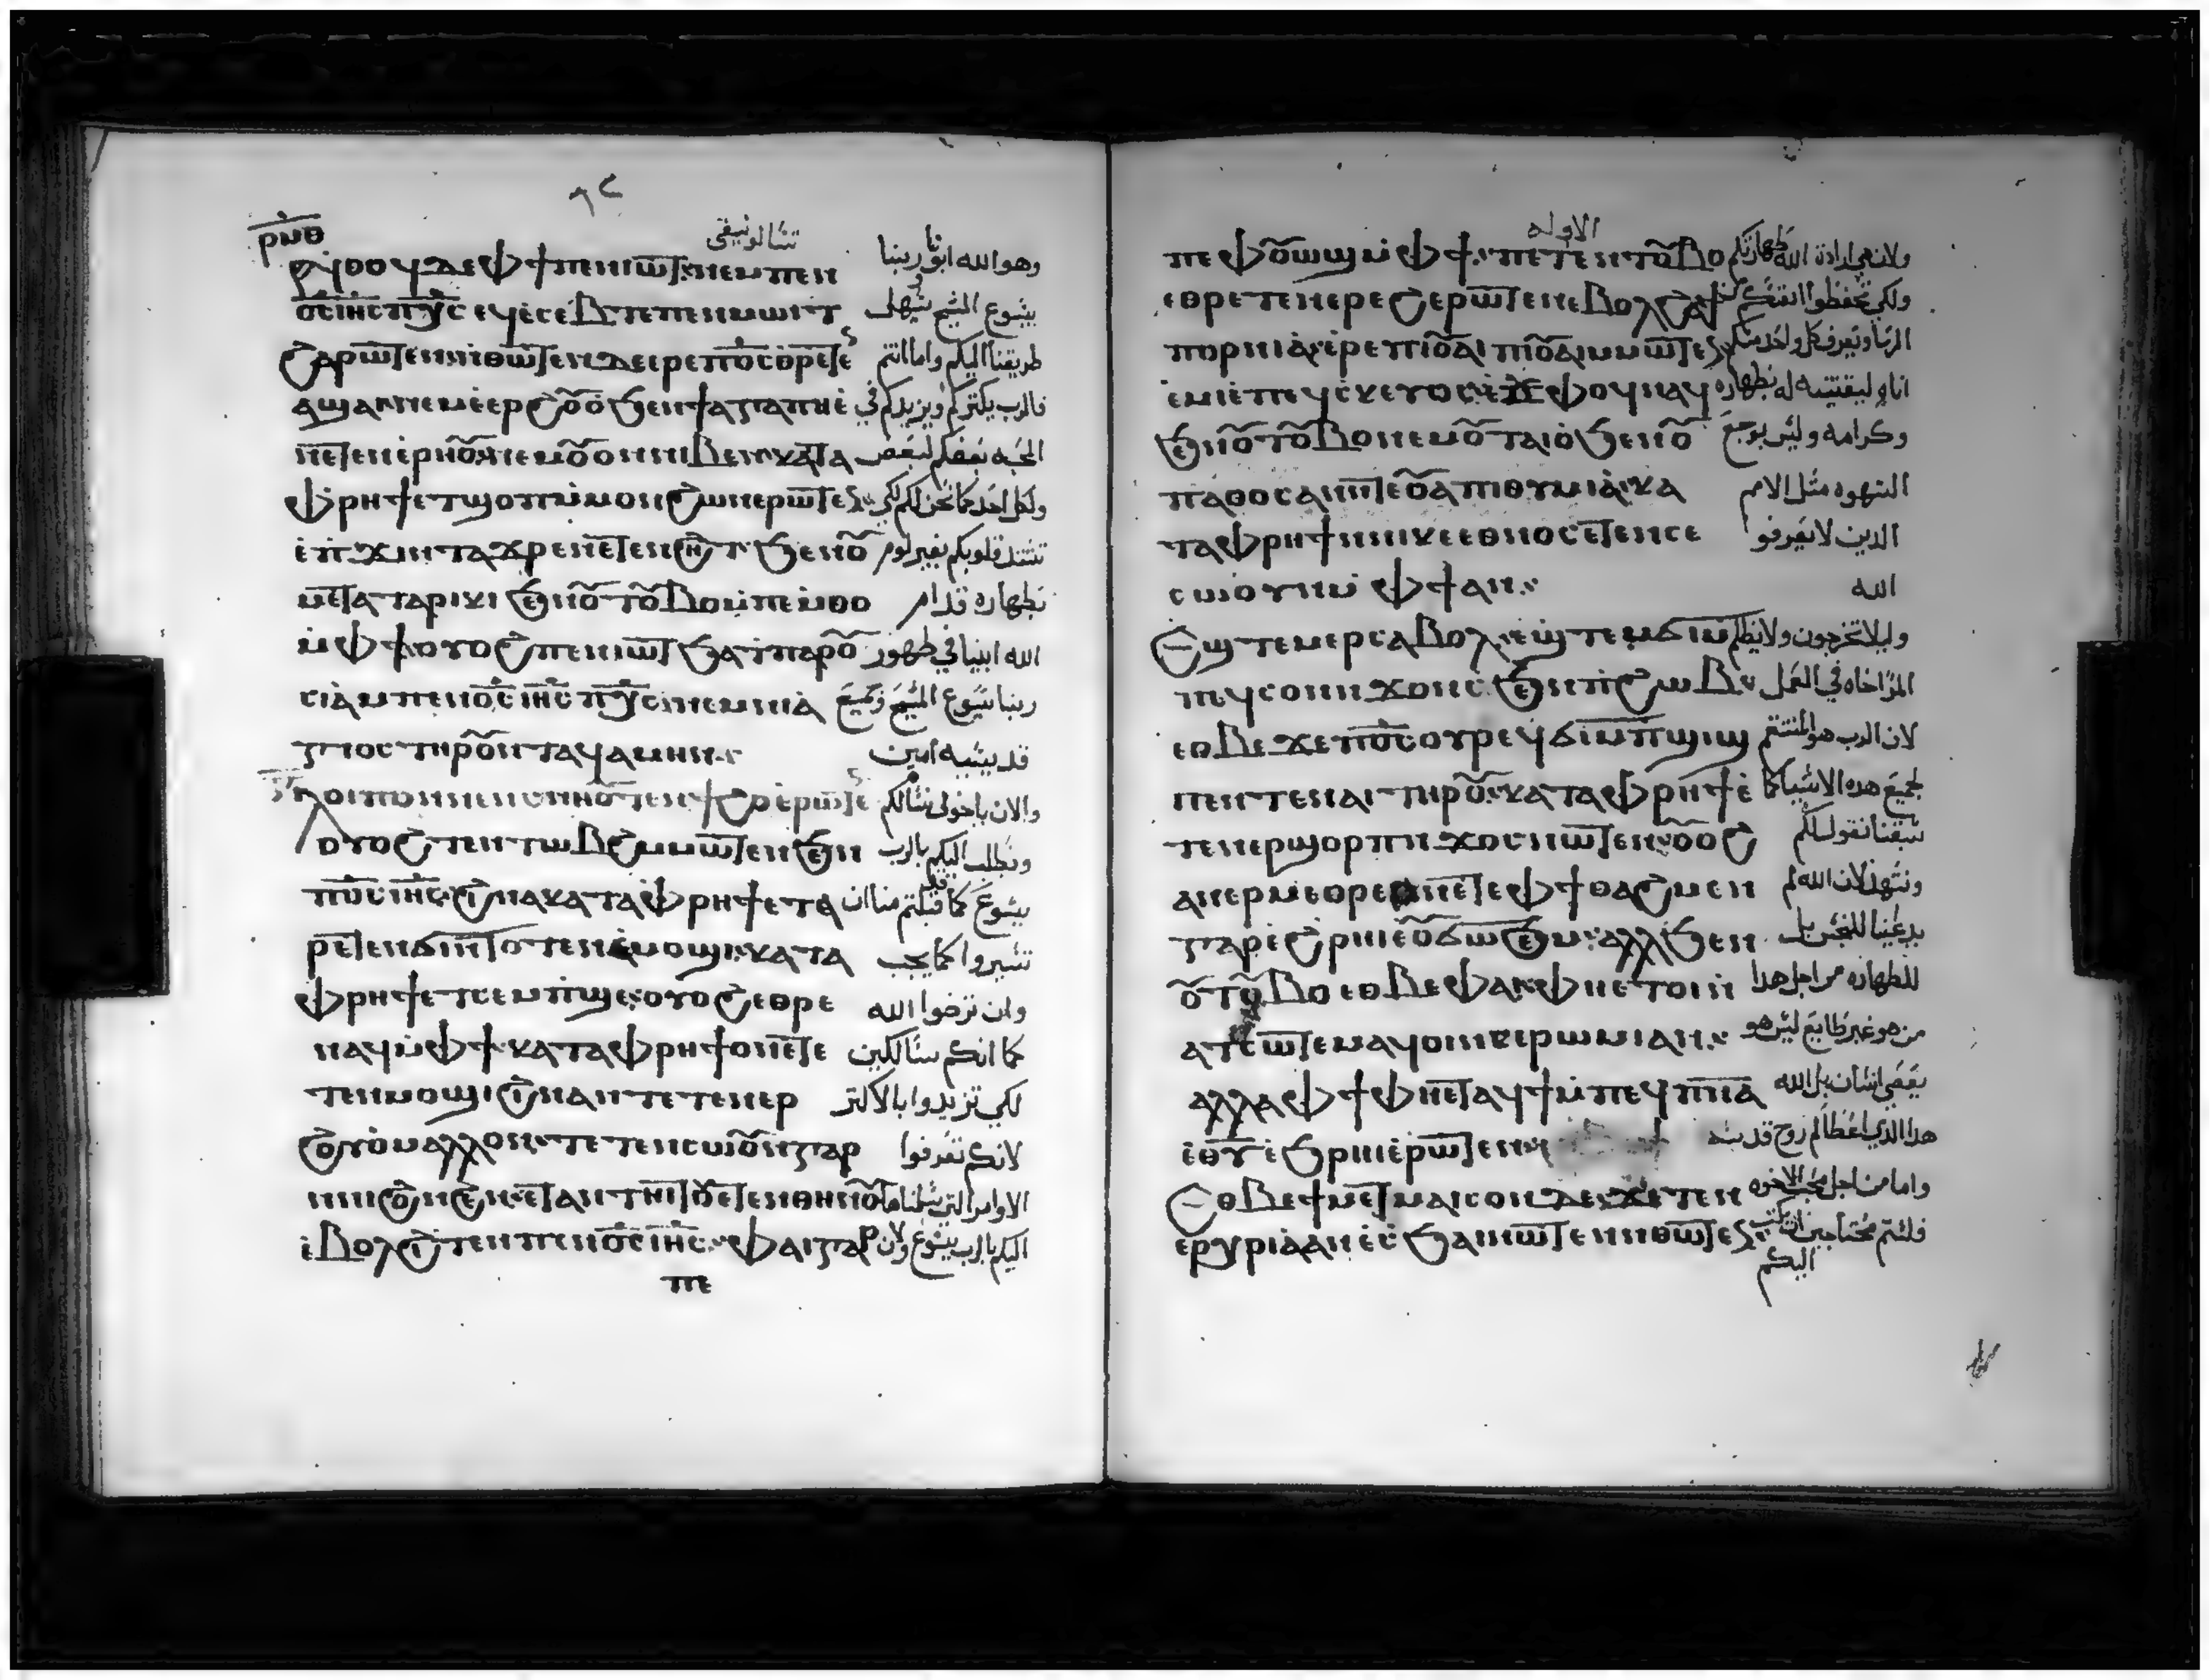 ⲣⲛⲑ
تسالونيقى
ⲛⲑⲟϥ ⲇⲉ ⲫϯ ⲡⲉⲛⲓⲱⲧ ⲛⲉⲙ ⲡⲉⲛ وهو الله ابونا ربنا
ⲟ̅ⲥ̅ ⲓⲏ̅ⲥ̅ ⲡⲭ̅ⲥ̅ ⲉϥⲉ̀ⲥⲉⲃⲧⲉ ⲡⲉⲛⲙⲱⲓⲧ يسوع المسيح يسهل
ϩⲁⲣⲱⲧⲉⲛ ⲛ̀ⲑⲱⲧⲉⲛ ⲇⲉ ⲉⲣⲉ ⲡⲟ̅ⲥ̅ ⲑⲣⲉⲧⲉ طريقنا اليكم واما انتم
ⲁϣⲁⲓ ⲛⲉⲙ ⲉ̀ⲉⲣϩⲟⲩⲟ̀ ϧⲉⲛ ϯⲁⲅⲁⲡⲏ ⲉ̀ فالرب يكتركم ويزيدكم في
ⲛⲉⲧⲉⲛⲉⲣⲏⲟⲩ ⲛⲉⲙ ⲟⲩⲟⲛ ⲛⲓⲃⲉⲛ ⲕⲁⲧⲁ المحبه بعضكم لبعض
ⲫⲣⲏϯ ⲉⲧϣⲟⲡ ⲙ̀ⲙⲟⲛ ϩⲱⲛ ⲉⲣⲱⲧⲉⲛ ولكل احد كما نحن لكم لكي
ⲉ̀ⲡϫⲓⲛⲧⲁϫⲣⲉ ⲛⲉⲧⲉⲛϩⲏⲧ ϧⲉⲛ ⲟⲩ تشتد قلوبكم بغير لوم
ⲙⲉⲧⲁⲧⲁⲣⲓⲕⲓ ϧⲉⲛ ⲟⲩⲧⲟⲩⲃⲟ ⲙ̀ⲡⲉⲙ̀ⲑⲟ بطهاره قدام
ⲙ̀ⲫϯ ⲟⲩⲟϩ ⲡⲉⲛⲓⲱⲧ ϧⲁ ⲧⲡⲁⲣⲟⲩ الله ابينا في ظهور
ⲥⲓⲁ̀ ⲙⲡⲉⲛⲟ̅ⲥ̅ ⲓⲏ̅ⲥ̅ ⲡⲭ̅ⲥ̅ ⲛⲉⲙ ⲛⲏⲁ̀ ربنا يسوع المسيح وجميع
ⲅⲓⲟⲥ ⲧⲏⲣⲟⲩ ⲛⲧⲁϥ ⲁⲙⲏⲛ قديسيه امين
ⲗⲟⲓⲡⲟⲛ ⲛⲉⲛⲥⲛⲏⲟⲩ ⲧⲉⲛϯϩⲟ ⲉⲣⲱⲧⲉ والان ياخوتي نسالكم
ⲟⲩⲟϩ ⲧⲉⲛⲧⲱⲃϩ ⲙⲙⲱⲧⲉⲛ ϧⲉⲛ ونطلب اليكم بالرب
ⲡⲟ̅ⲥ̅ ⲓⲏ̅ⲥ̅ ϩⲓⲛⲁ ⲕⲁⲧⲁ ⲫⲣⲏϯ ⲉⲧⲁ يسوع كما قبلتم منا ان
ⲣⲉⲧⲉⲛϭⲓ ⲛⲧⲟⲧⲉⲛ ⲉ̀ⲙⲟϣⲓ ⲕⲁⲧⲁ تسيروا كما يجب
ⲫⲣⲏϯ ⲉⲧⲥⲉⲙⲡϣⲉ ⲟⲩⲟϩ ⲉⲑⲣⲉ وان ترضوا الله
ⲛⲁϥ ⲙ̀ⲫϯ ⲕⲁⲧⲁ ⲫⲣⲏϯ ⲟⲛ ⲉⲧⲉ كما انكم سالكين
ⲧⲉⲛⲙⲟϣⲓ ϩⲓⲛⲁ ⲛⲧⲉⲧⲉⲛⲉⲣ لكي تزيدوا بالاكثر
ϩⲟⲩⲟ̀ ⲙⲁⲗⲗⲟⲛ ⲧⲉⲧⲉⲛⲥⲱⲟⲩⲛ ⲅⲁⲣ لانكم تعرفوا
ⲛⲛⲓϩⲟⲛϩⲉⲛ ⲉⲧⲁⲛⲧⲏⲓⲧⲟⲩ ⲉⲧⲉⲛ ⲑⲏⲛⲟⲩ الاوامر التي سلمناها
ⲉ̀ⲃⲟⲗϩⲓⲧⲉⲛ ⲡⲉⲛⲟ̅ⲥ̅ ⲓⲏ̅ⲥ̅ ⲫⲁⲓ ⲅⲁⲣ اليكم بالرب يسوع ولان
ⲡⲉ
الاوله
ⲡⲉ ⲫⲟⲩⲱϣ ⲙ̀ⲫϯ ⲡⲉⲧⲉⲛⲧⲟⲩⲃⲟ ولان هي ارادة الله طهارتكم
ⲉⲑⲣⲉⲧⲉⲛⲉⲣⲉϩ ⲉⲣⲱⲧⲉⲛ ⲉⲃⲟⲗϩⲁ ϯ ولكي تحفظوا انفسكم من
ⲡⲟⲣⲛⲓⲁ̀ ⲉ̀ⲣⲉ ⲡⲓⲟⲩⲁⲓ ⲡⲓⲟⲩⲁⲓ ⲙⲙⲱⲧⲉⲛ الزنا ويعرف كل واحد منكم
ⲉⲙⲓ ⲉ̀ⲡⲉϥⲥⲕⲉⲩⲟⲥ ⲉ̀ϫⲫⲟϥ ⲛⲁϥ اناه ليقتنيه له بطهاره
ϧⲉⲛ ⲟⲩⲧⲟⲩⲃⲟ ⲛⲉⲙ ⲟⲩⲧⲁⲓⲟ̀ ϧⲉⲛ ⲟⲩ وكرامه وليس بوجع
ⲡⲁⲑⲟⲥ ⲁⲛ ⲛⲧⲉ ⲟⲩⲁⲡⲓⲑⲩⲙⲓⲁ̀ ⲕⲁ الشهوه مثل الامم
ⲧⲁ ⲫⲣⲏϯ ⲛⲛⲓⲕⲉⲉⲑⲛⲟⲥ ⲉⲧⲉⲛⲥⲉ الذين لا يعرفوا
ⲥⲱⲟⲩⲛ ⲙ̀ⲫϯ ⲁⲛ الله
ⲉϣⲧⲉⲙⲉⲣⲥⲁⲃⲟⲗ ⲉ̀ϣⲧⲉⲙϭⲓ ⲛ ولیلا تخرجون ولا يظلم
ⲡϥⲥⲟⲛ ⲛϫⲟⲛⲥ ϧⲉⲛ ⲡϩⲱⲃ المرا اخاه في العمل
ⲉⲑⲃⲉ ϫⲉ ⲡⲟ̅ⲥ̅ ⲟⲩⲣⲉϥϭⲓ ⲙⲡϣⲓϣ لان الرب هو المنتقم
ⲡⲉ ⲛⲧⲉ ⲛⲁⲓ ⲧⲏⲣⲟⲩ ⲕⲁⲧⲁ ⲫⲣⲏϯ ⲉ̀ لجميع هذه الاشيا كما
ⲧⲉⲛⲉⲣϣⲟⲣⲡ ⲛϫⲟⲥ ⲛⲱⲧⲉⲛ ⲟⲩⲟϩ سبقنا نقول لكم
ⲁⲛⲉⲣⲙⲉⲑⲣⲉ ⲛⲉⲧⲉ ⲫϯ ⲑⲁϩⲙⲉⲛ ونشهد لان الله لم
ⲅⲁⲣ ⲉ̀ϩⲣⲏⲓ ⲉⲟⲩϭⲱϧⲉⲙ ⲁⲗⲗⲁ ϧⲉⲛ يدعينا للنجس بل
ⲟⲩⲧⲟⲩⲃⲟ ⲉⲑⲃⲉ ⲫⲁⲓ ⲫⲏ ⲉⲧⲟⲓ ⲛ للطهاره من اجل هذا
ⲁⲧⲥⲱⲧⲉⲙ ⲁϥⲟⲓ ⲛⲉⲣⲱⲙⲓ ⲁⲛ من هو غير طايع ليس هو
ⲁⲗⲗⲁ ⲫϯ ⲫⲏ ⲉⲧⲁϥϯ ⲙ̀ⲡⲉϥⲡ̅ⲛ̅ⲁ̅ يعصي انسان بل الله
ⲉⲑⲩ ⲉ̀ϧⲣⲏⲓ ⲉ̀ⲣⲱⲧⲉⲛ هذا الذي اعطاكم روح قدسه
ⲉⲑⲃⲉ ϯⲙⲉⲧⲙⲁⲓⲥⲟⲛ ⲇⲉ ⲧⲉⲧⲉⲛ واما من اجل محبة الاخوه
ⲉⲣⲭⲣⲓⲁ ⲁⲛ ⲉ̀ⲥϧⲁⲓ ⲛⲱⲧⲉⲛ ⲛⲑⲱⲧⲉⲛ فلستم محتاجين ان نكتب
اليكم